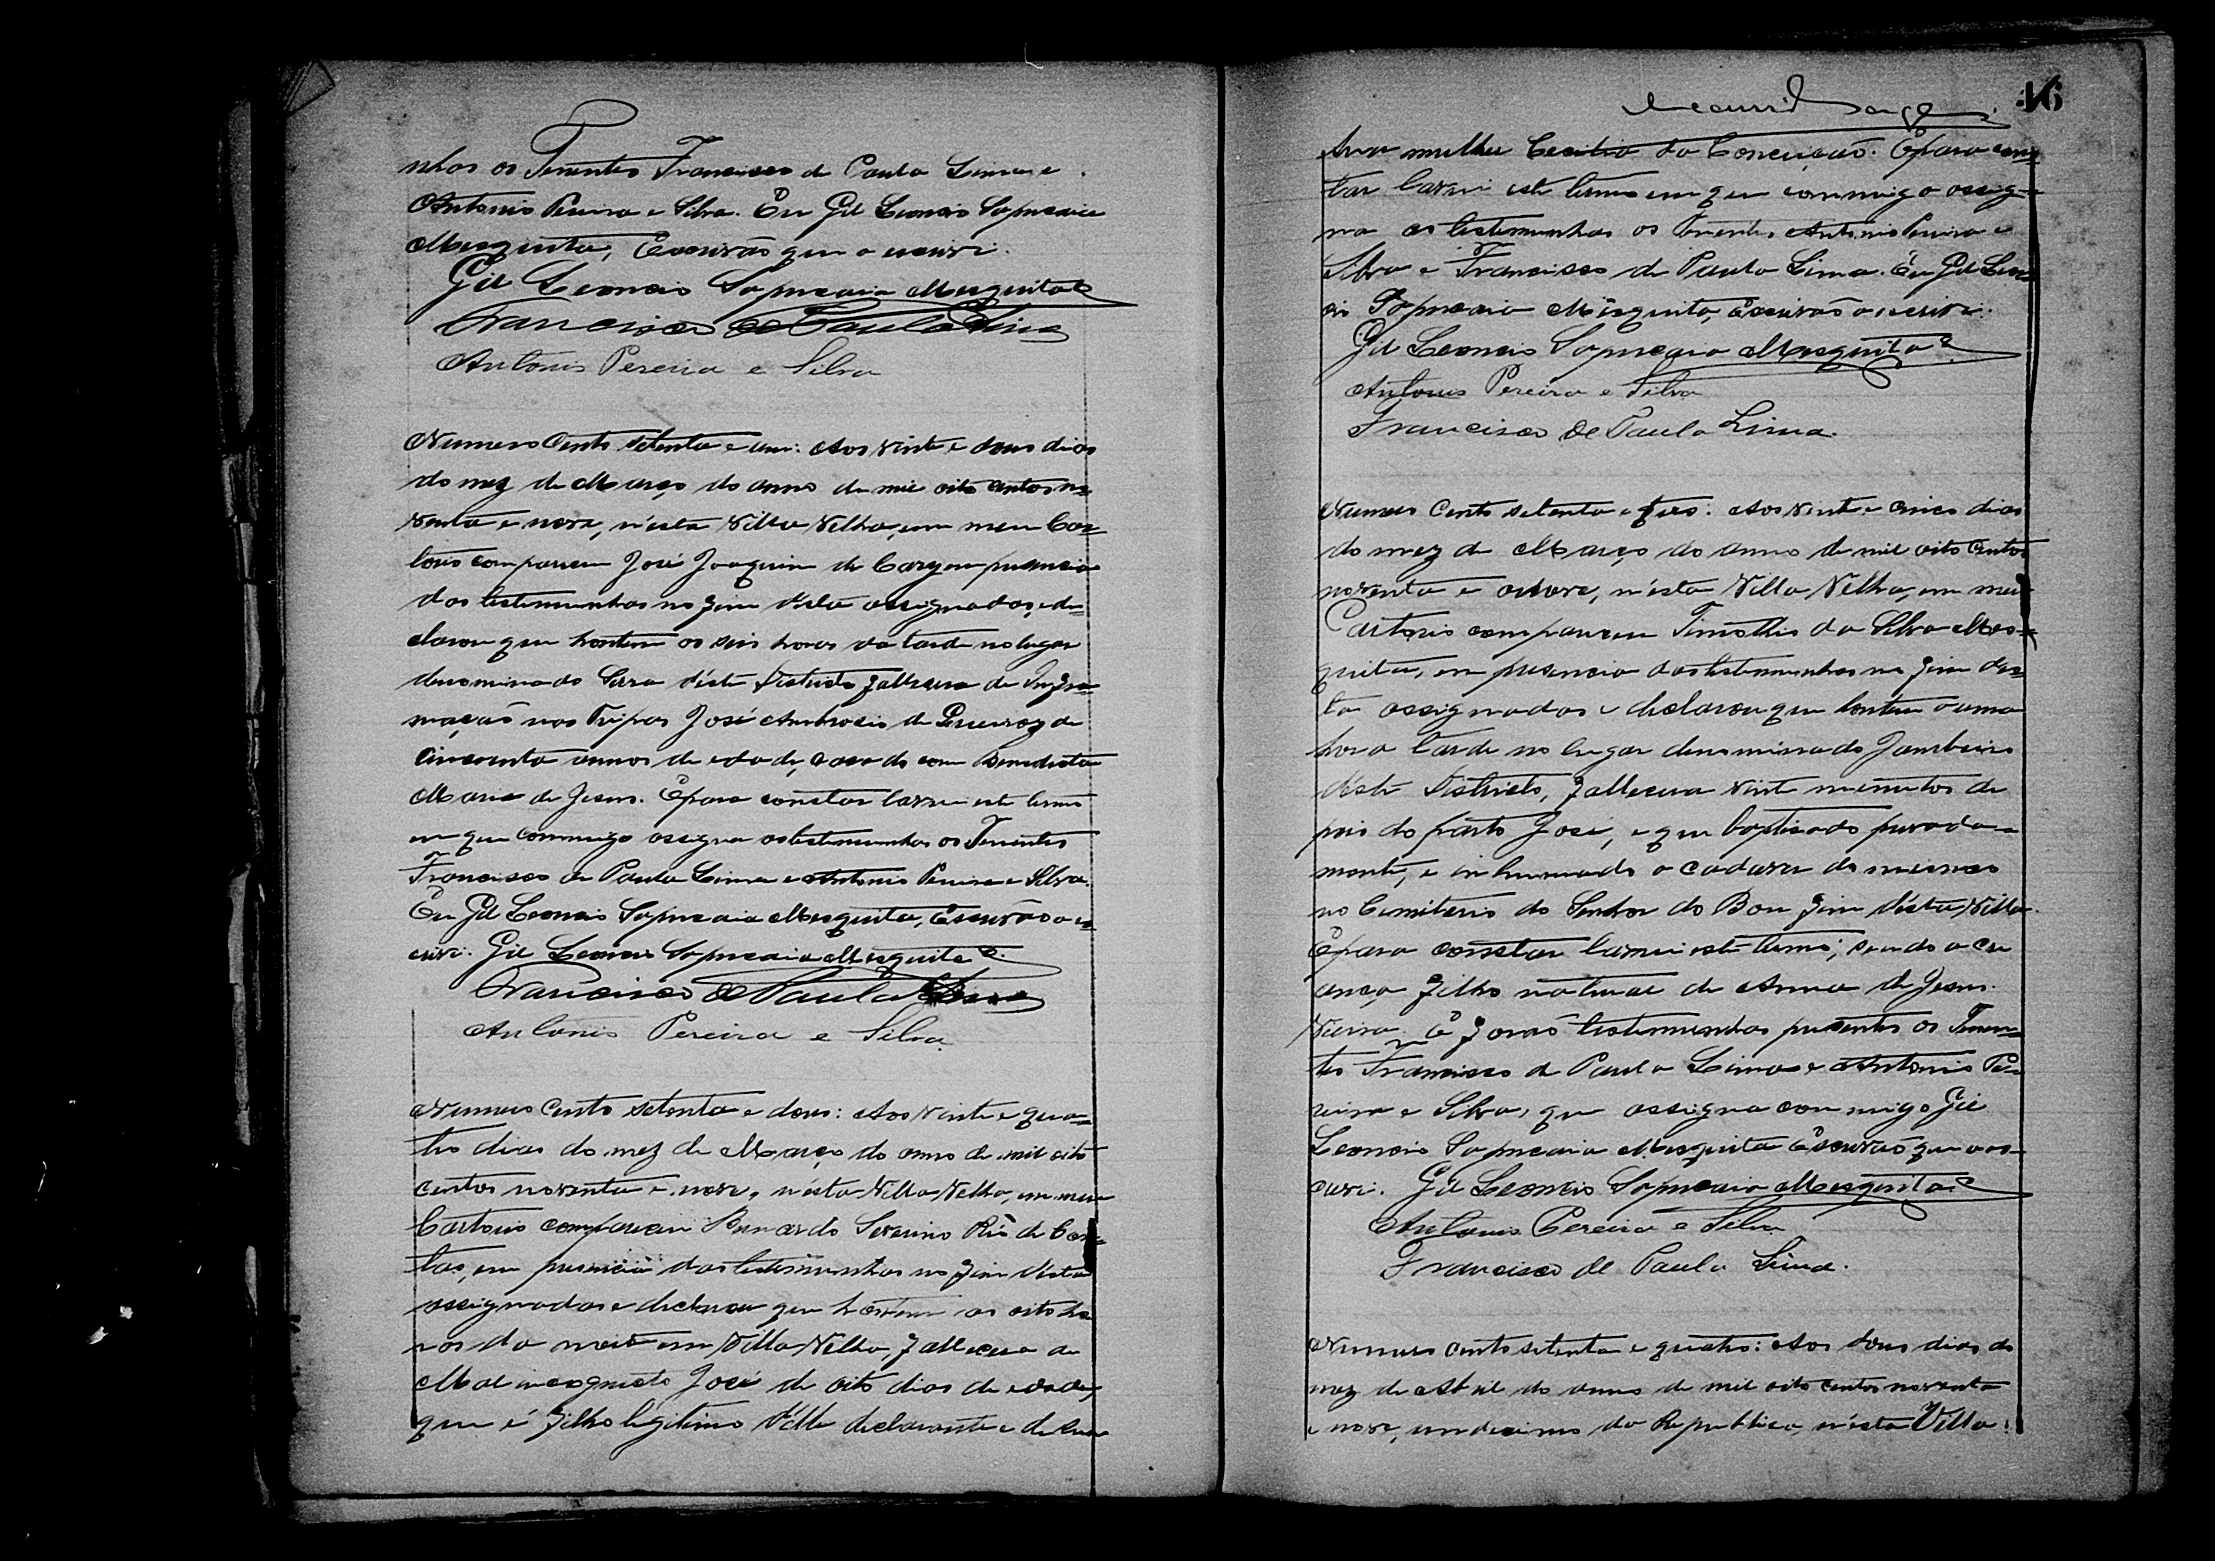 nhas os Tenentes Francisco de Paula Lima e
Antonio Pereira e Silva. Eu Gil Leoncio Sapucaia
Mesquita, Escrivão que o escrivi.
Gil Leoncio Sapucaia Mesquita
Francisco de Paula Lima
Antonio Pereira e Silva
Numero Cento setenta e um: Aos vinte e dous dias
do mez de Março do anno de mil oito centos no-
venta e nove, n'esta Villa Velha, em meu Car-
torio compareceu José Joaquim de em presencia
das testemunhas no fim desta assignadas, e de-
clarou que hontem as seis horas da tarde no lugar
denominado Serra d'éste Districto falleceu de Infla-
mação nas Tripas José Ambrosio de Queiroz de
cincoenta annos de edade, casado com Benedicta
Maria de Jesus. E para constar lavrei este termo
em que commigo assigna as testemunhas os Tenentes
Francisco de Paula Lima e Antonio Pereira e Silva.
Eu Gil Leoncio Sapucaia Mesquita, Escrivão o es-
crivi. Gil Leoncio Sapucaia Mesquita
Francisco de Paula Lima
Antonio Pereira e Silva
Numero Cento setenta e dous: Aos vinte e qua-
tro dias do mez de Março do anno de mil oito
centos noventa e nove, n'ésta Villa Velha, em meu
Cartorio compareceu Bernardo Severino Rio de Con-
tas, em presencia das testemunhas no fim désta
assignadas e declarou que hontem as oito ho-
ras da noite em Villa Velha, falleceu de
Mal incognito José de oito dias de edade,
que é filho legitimo d'élle declarante e de sua
46
sua mulher Cecilia da Conceição. E para cons-
tar lavrei este termo em que commigo assig-
na as testemunhas os Tenentes Antonio Pereira e
Silva e Francisco de Paula Lima. Eu Gil Leon-
cio Sapucaia Mesquita, Escrivão o escrivi.
Gil Leoncio Sapucaia Mesquita
Antonio Pereira e Silva
Francisco de Paula Lima.
Numero Cento setenta e tres: Aos vinte e cinco dias
do mez de Março do anno de mil oito centos
noventa e nove, n'ésta Villa Velha, em meu
Cartorio compareceu Timotheo da Silva Mes-
quita, em presencia das testemunhas no fim des-
ta assignadas e declarou que hontem a uma
hora tarde no lugar denominado
d'éste Districto, fallecera vinte minutos de
pois do parto José, e que baptisado
mente, e inhumado o cadaver do mesmo
no Cimiterio do Senhor do Bom fim désta Villa.
E para constar lavrei este termo; sendo a cri
ança filho natural de Anna de Jesus
Vieira. E foraõ testemunhas presentes os Tenen-
tes Francisco de Paula Lima e Antonio Pe
reira e Silva, que assigna commigo Gil
Leoncio Sapucaia Mesquita Escrivão que o es-
crivi. Gil Leoncio Sapucaia Mesquita
Antonio Pereira e Silva
Francisco de Paula Lima.
Numero cento setenta e quatro: Aos dous dias do
mez de Abril do anno de mil oito centos noventa
e nove, undecimo da Republica, n'ésta Villa